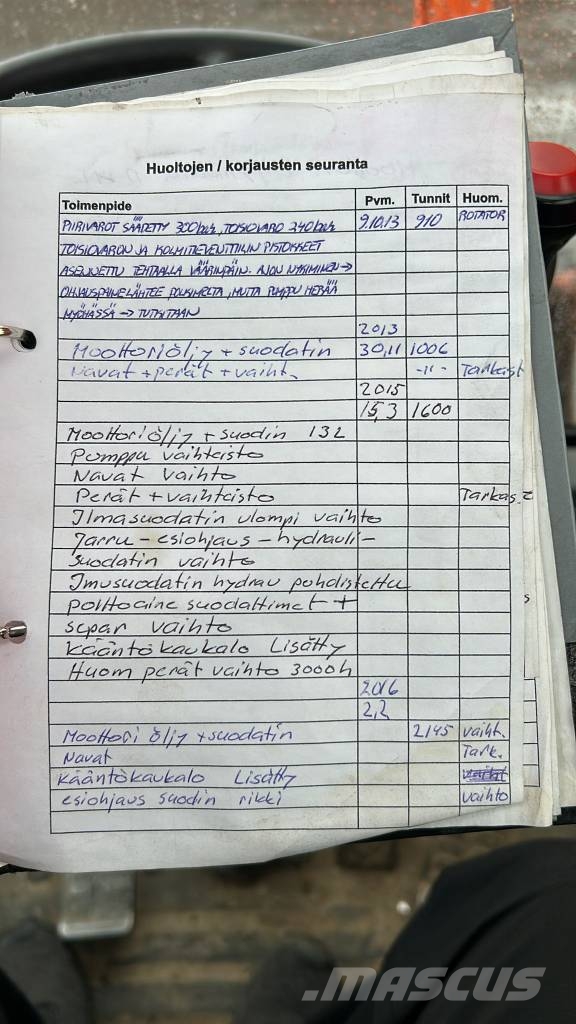 Huoltojen / korjausten seuranta
Toimenpide Pvm. Tunnit Huom.
PIIRIVAROT SÄÄDETTY 300bar, TOISIOVARO 240bar 9.10.13 910 ROTATOR
TOISIOVARON JA KOLMITIEVENTTIILIN PISTOKKEET
ASENNETTU TEHTAALLA VÄÄRINPÄIN. AJON NYKIMINEN →
OHJAUSPAINE LÄHTEE POLKIMELTA, MUTTA PUMPPU HERÄÄ
MYÖHÄSSÄ → TUTKITAAN
2013
Moottoriöljy + suodatin 30,11 1006
Navat + perät + vaiht. -11- Tarkast
2015
15,3 1600
Moottoriöljy + suodin 13L
Pumppu vaihteisto
Navat vaihto
Perät + vaihteisto Tarkas.t
Ilmasuodatin ulompi vaihto
Jarru - esiohjaus - hydrauli -
suodatin vaihto
Imusuodatin hydrau puhdistettu
polttoaine suodattimet +
separ vaihto
Kääntökaukalo Lisätty
Huom perät vaihto 3000h
2016
2,2
Moottori öljy + suodatin 2145 vaiht.
Navat Tark.
Kääntökaukalo Lisätty
esiohjaus suodin rikki vaihto
s
.MASCUS